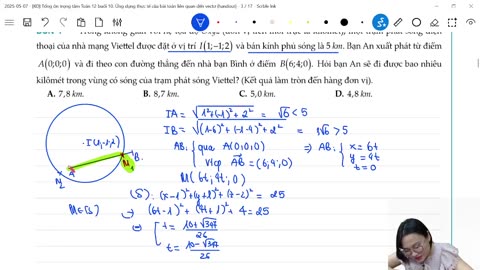 2025-05-07 - [BD] Tổng ôn trọng tâm Toán 12 buổi 10. Ứng dụng thực tế của bài toán liên quan đến vector (handout) 3 / 17 - Scribble Ink
thoại của nhà mạng Viettel được đặt ở vị trí I(1;−1;2) và bán kính phủ sóng là 5 km. Bạn An xuất phát từ điểm
A(0;0;0) và đi theo con đường thẳng đến nhà bạn Bình ở điểm B(6;4;0). Hỏi bạn An sẽ đi được bao nhiêu
kilômét trong vùng có sóng của trạm phát sóng Viettel? (Kết quả làm tròn đến hàng đơn vị).
A. 7,8 km. B. 8,7 km. C. 5,0 km. D. 4,8 km.
IA = √1²+(-1)²+2² = √6 < 5
IB = √(1-6)²+(-1-4)²+2² = > 5
AB: qua A(0;0;0)
vtcp AB = (6;4;0)
=> AB: x = 6t
y = 4t
z = 0
I(1,-1,2)
A
B
M(6t;4t;0)
(S): (x-1)²+(y+1)²+(z-2)² = 25
M∈(S) → (6t-1)²+(4t+1)²+4=25
t = 10+√347 / 26
t = 10-√347 / 26